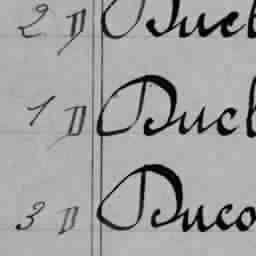 2 D Duc
1 D Duc
3 D Duco